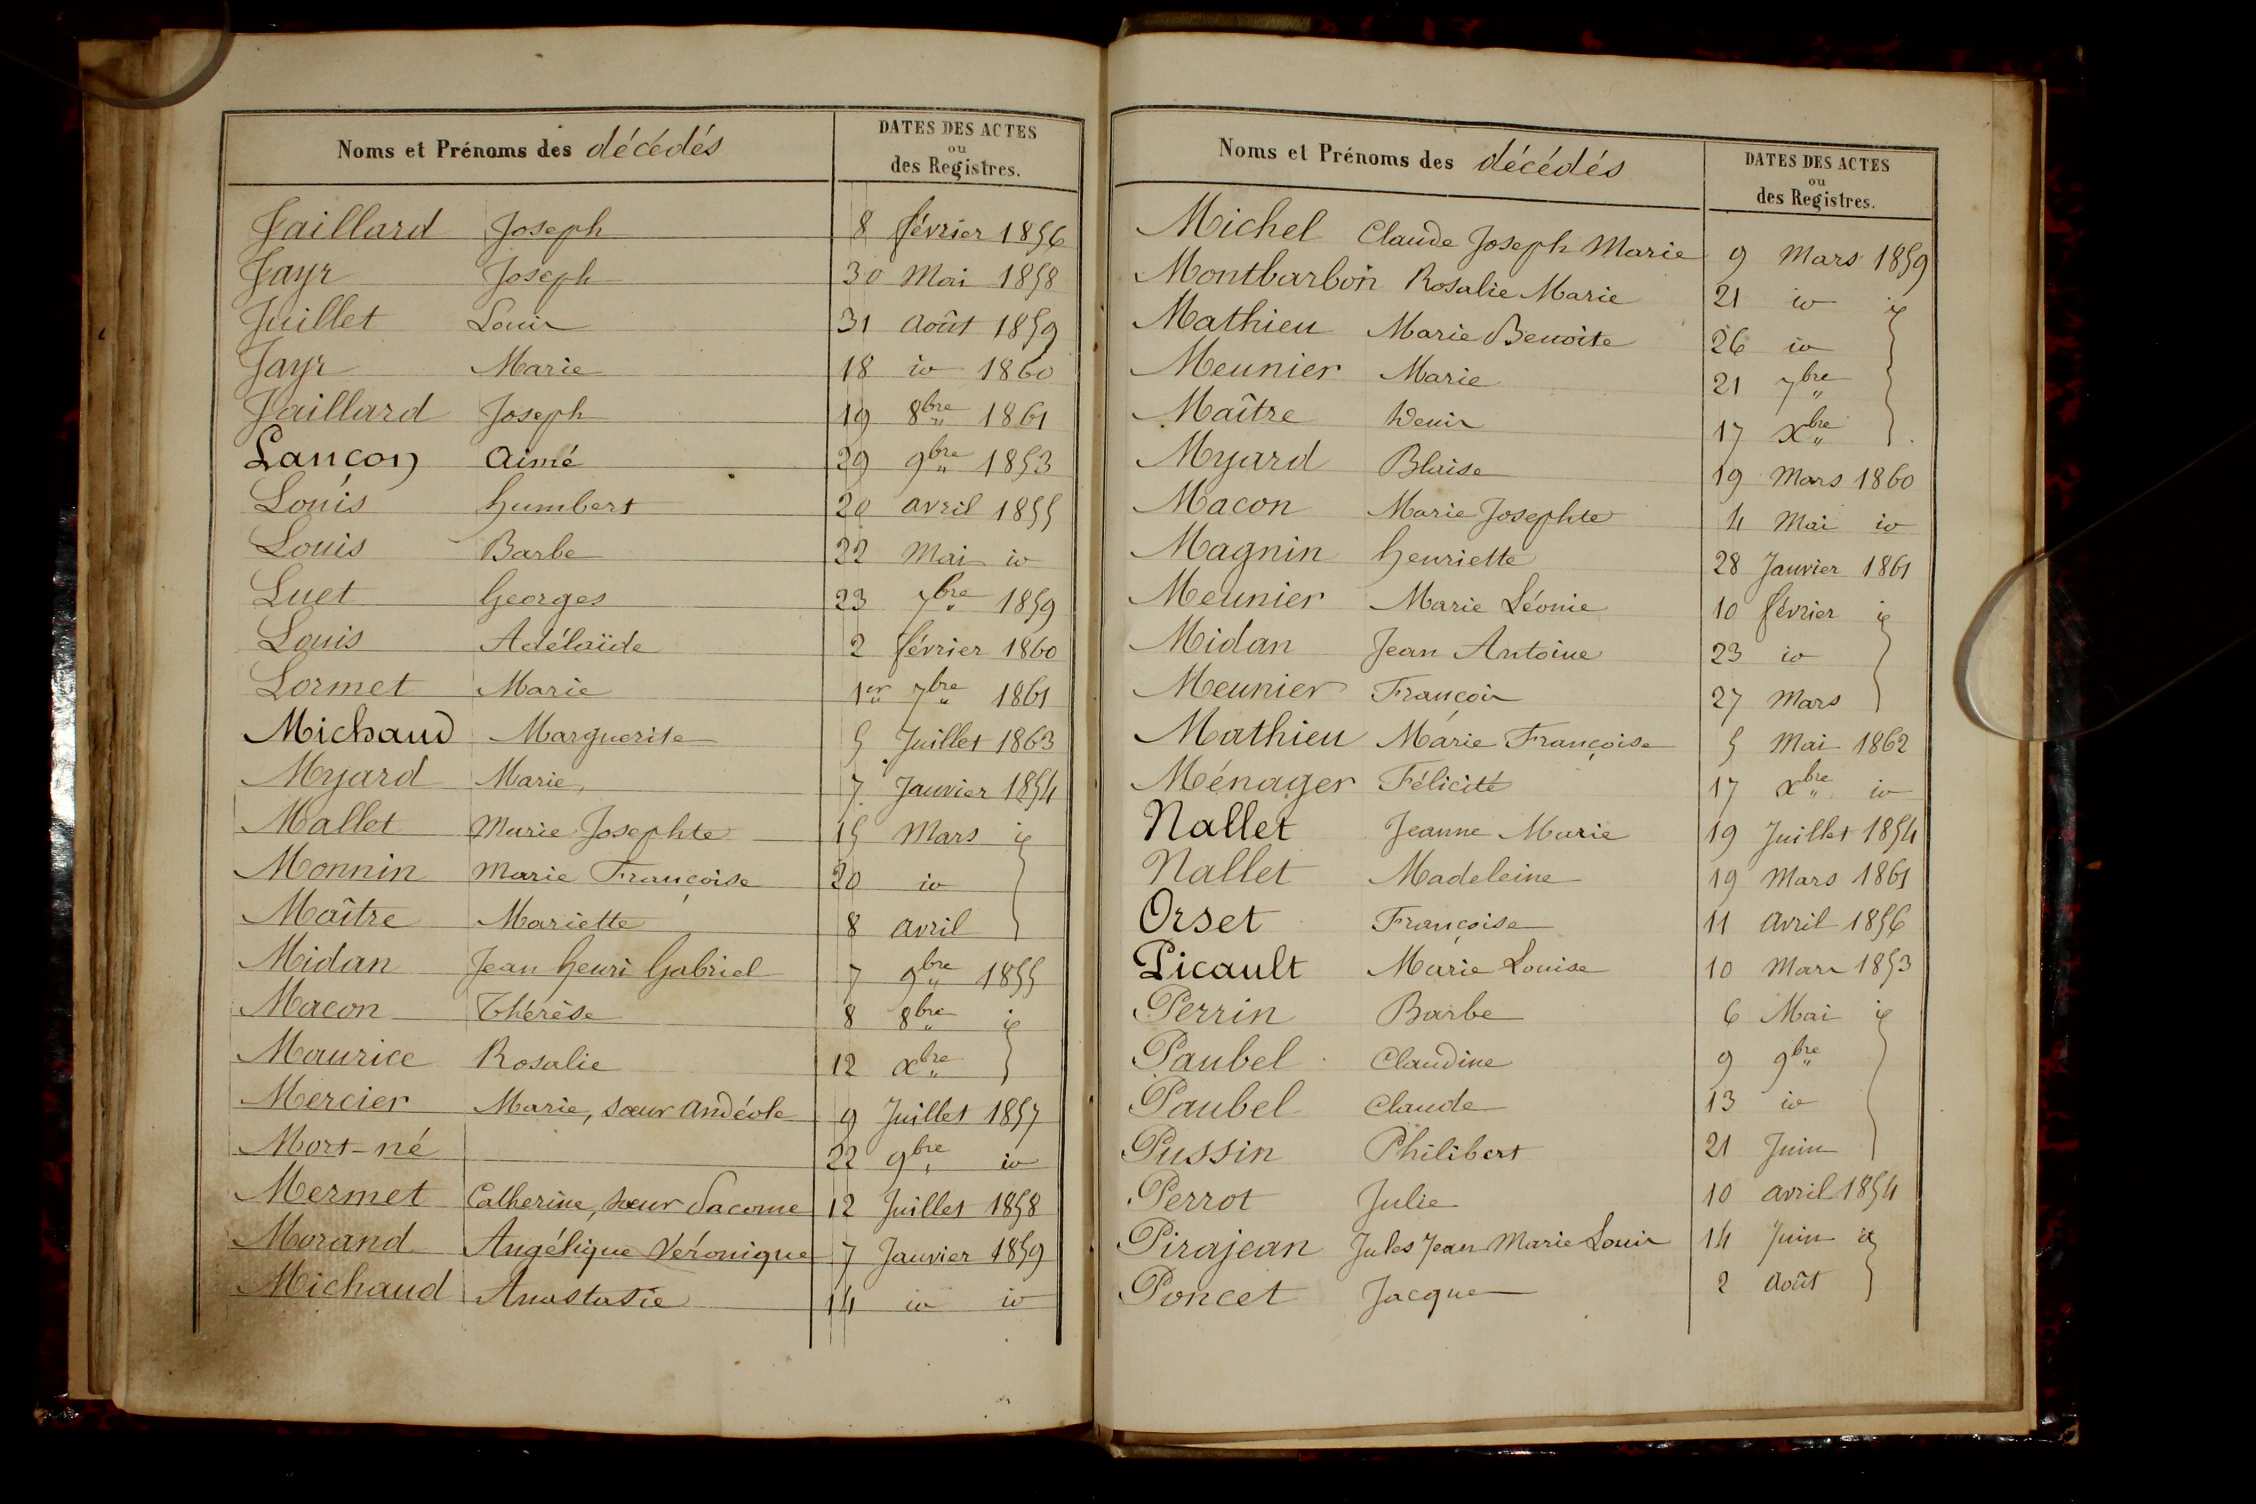 Noms et Prénoms des décédés DATES DES ACTES
ou
des Registres.
Jaillard Joseph 8 février 1856
Jayr Joseph 30 Mai 1858
Juillet Louis 31 Août 1859
Jayr Marie 18 id 1860
Jaillard Joseph 19 8bre 1861
Lançon Aimé 29 9bre 1853
Louis humbert 20 avril 1855
Louis Barbe 22 Mai id
Luet Georges 23 7bre 1859
Louis Adélaïde 2 février 1860
Lormet Marie 1er 7bre 1861
Michaud Marguerite 5 Juillet 1863
Myard Marie, 7 Janvier 1854
Mallet Marie Josephte 15 Mars id
Monnin Marie Françoise 20 id
Maître Mariette 8 avril
Midan Jean henri Gabriel 7 9bre 1855
Macon Thérèse 8 8bre id
Maurice Rosalie 12 xbre
Mercier Marie, sœur Andéole 9 Juillet 1857
Mort-né 22 9bre id
Mermet Catherine, sœur Jacome 12 Juillet 1858
Morand Angélique Véronique 7 Janvier 1859
Michaud Anastasie 14 id id
Noms et Prénoms des décédés DATES DES ACTES
ou
des Registres.
Michel Claude Joseph Marie 9 Mars 1859
Montbarbon Rosalie Marie 21 id id
Mathieu Marie Benoite 26 id
Meunier Marie 21 7bre
Maître Denis 17 xbre
Myard Blaise 19 Mars 1860
Macon Marie Josephte 4 Mai id
Magnin henriette 28 Janvier 1861
Meunier Marie Léonie 10 février id
Midan Jean Antoine 23 id
Meunier François 27 Mars
Mathieu Marie Françoise 5 Mai 1862
Ménager Félicité 17 xbre id
Nallet Jeanne Marie 19 Juillet 1854
Nallet Madeleine 19 Mars 1861
Orset Françoise 11 Avril 1856
Picault Marie Louise 10 Mars 1853
Perrin Barbe 6 Mai id
Paubel Claudine 9 9bre
Paubel Claude 13 id
Pussin Philibert 21 Juin
Perrot Julie 10 avril 1854
Pirajean Jules Jean Marie Louis 14 Juin id
Poncet Jacques 2 Août